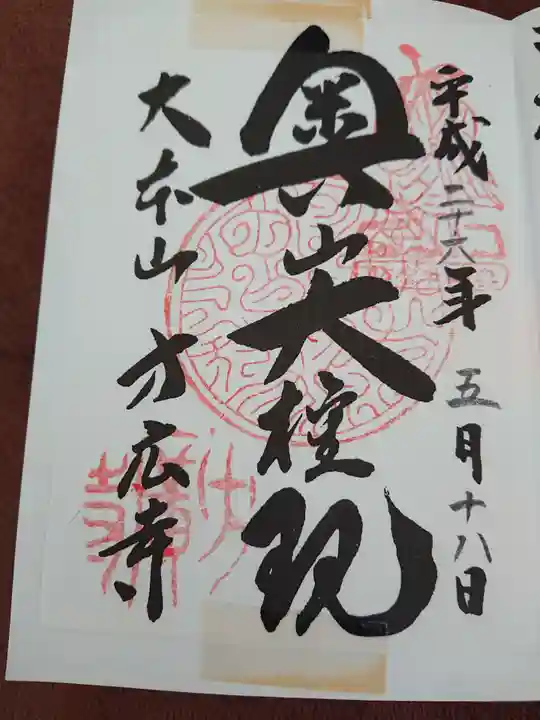 平成二十六年 五月十八日
奥山大権現
大本山 方広寺